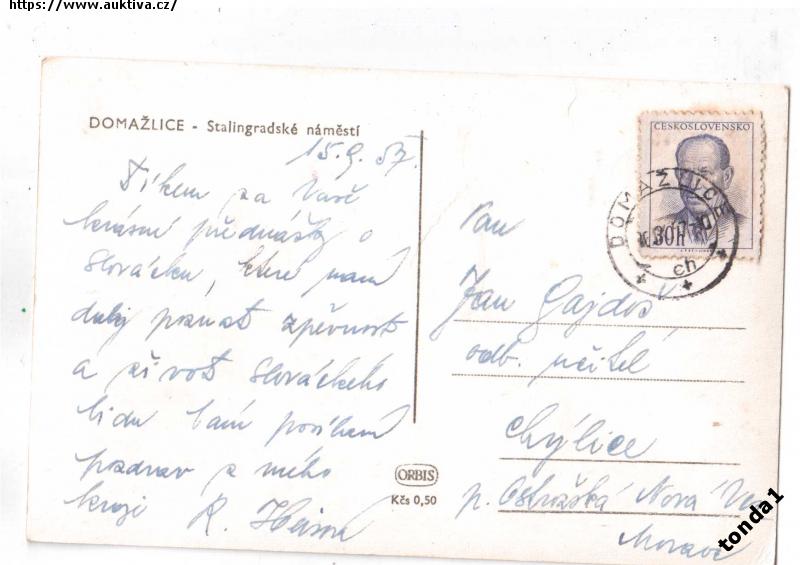 https://www.auktiva.cz/
DOMAŽLICE - Stalingradské náměstí
15.9.57.
Díkem za Vaše
krásné přednášky o
Slovácku, které nám
daly poznat zpěvnost
a život slováckého
lidu Vám posílám
pozdrav z mého
kraje R.
ORBIS
Kčs 0,50
ČESKOSLOVENSKO
DOMAŽLICE
30H
ch
Pan
Jan Gajdoš
odb. učitel
Chýlice
p. Ostrožská Nová Ves
Morava
tonda1